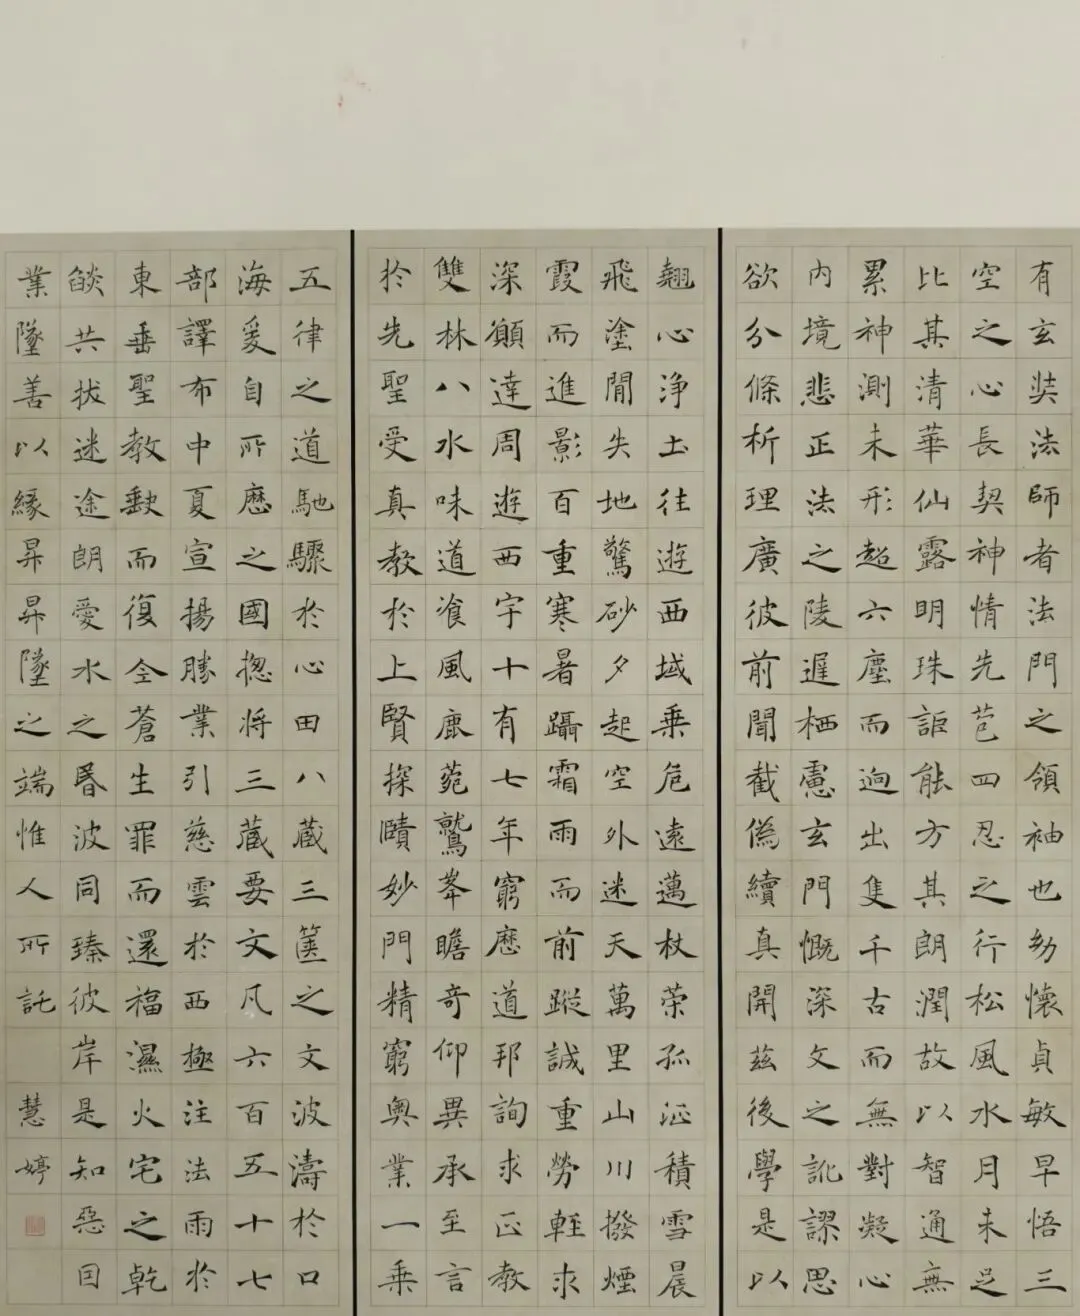 有玄奘法師者法門之領袖也幼懷貞敏早悟三
空之心長契神情先苞四忍之行松風水月未足
比其清華仙露明珠詎能方其朗潤故以智通無
累神測未形超六塵而迥出隻千古而無對凝心
內境悲正法之陵遲栖慮玄門慨深文之訛謬思
欲分條析理廣彼前聞截偽續真開茲後學是以
翹心淨土往遊西域乘危遠邁杖策孤征積雪晨
飛塗閒失地驚砂夕起空外迷天萬里山川撥煙
霞而進影百重寒暑躡霜雨而前蹤誠重勞輕求
深願達周遊西宇十有七年窮歷道邦詢求正教
雙林八水味道飡風鹿菀鷲峯瞻奇仰異承至言
於先聖受真教於上賢探賾妙門精窮奧業一乘
五律之道馳驟於心田八藏三篋之文波濤於口
海爰自所歷之國揔將三藏要文凡六百五十七
部譯布中夏宣揚勝業引慈雲於西極注法雨於
東垂聖教缺而復全蒼生罪而還福濕火宅之乾
燄共拔迷途朗愛水之昏波同臻彼岸是知惡因
業墜善以緣昇昇墜之端惟人所託 慧婷